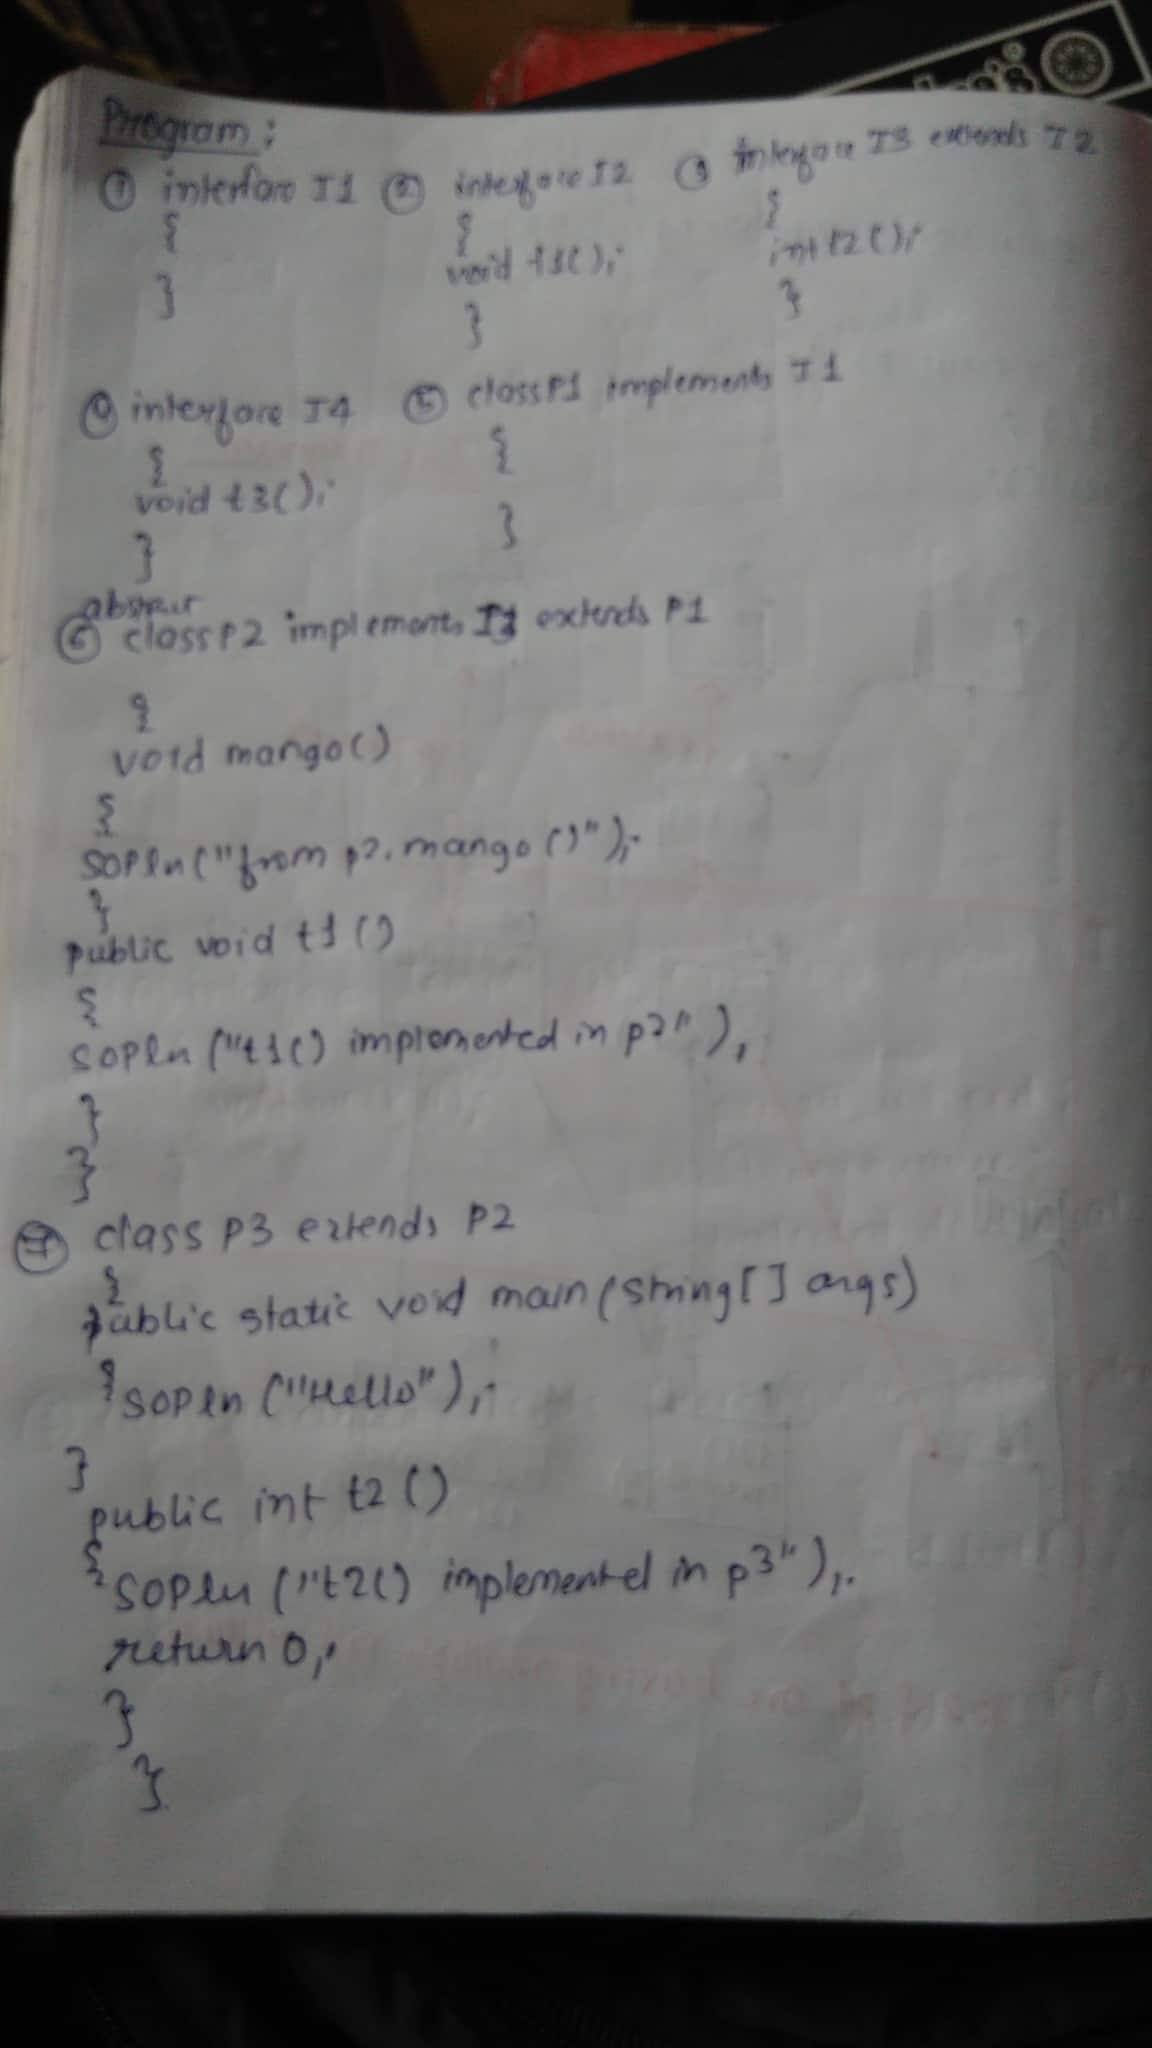 Program:
① interface I1 ② interface I2 ③ interface I3 extends I2
{ { {
void t1(); int t2();
} } }
④ interface I4 ⑤ class P1 implements I1
{ {
void t3();
} }
abstract
⑥ class P2 implements extends P1
{
void mango()
{
SOPln("from p2.mango()");
}
public void t1()
{
SOPln("t1() implemented in p2"),
}
}
⑦ class P3 extends P2
{
public static void main(string[] args)
{ SOPln("Hello");
}
public int t2()
{ SOPln("t2() implemented in p3");
return 0;
}
}